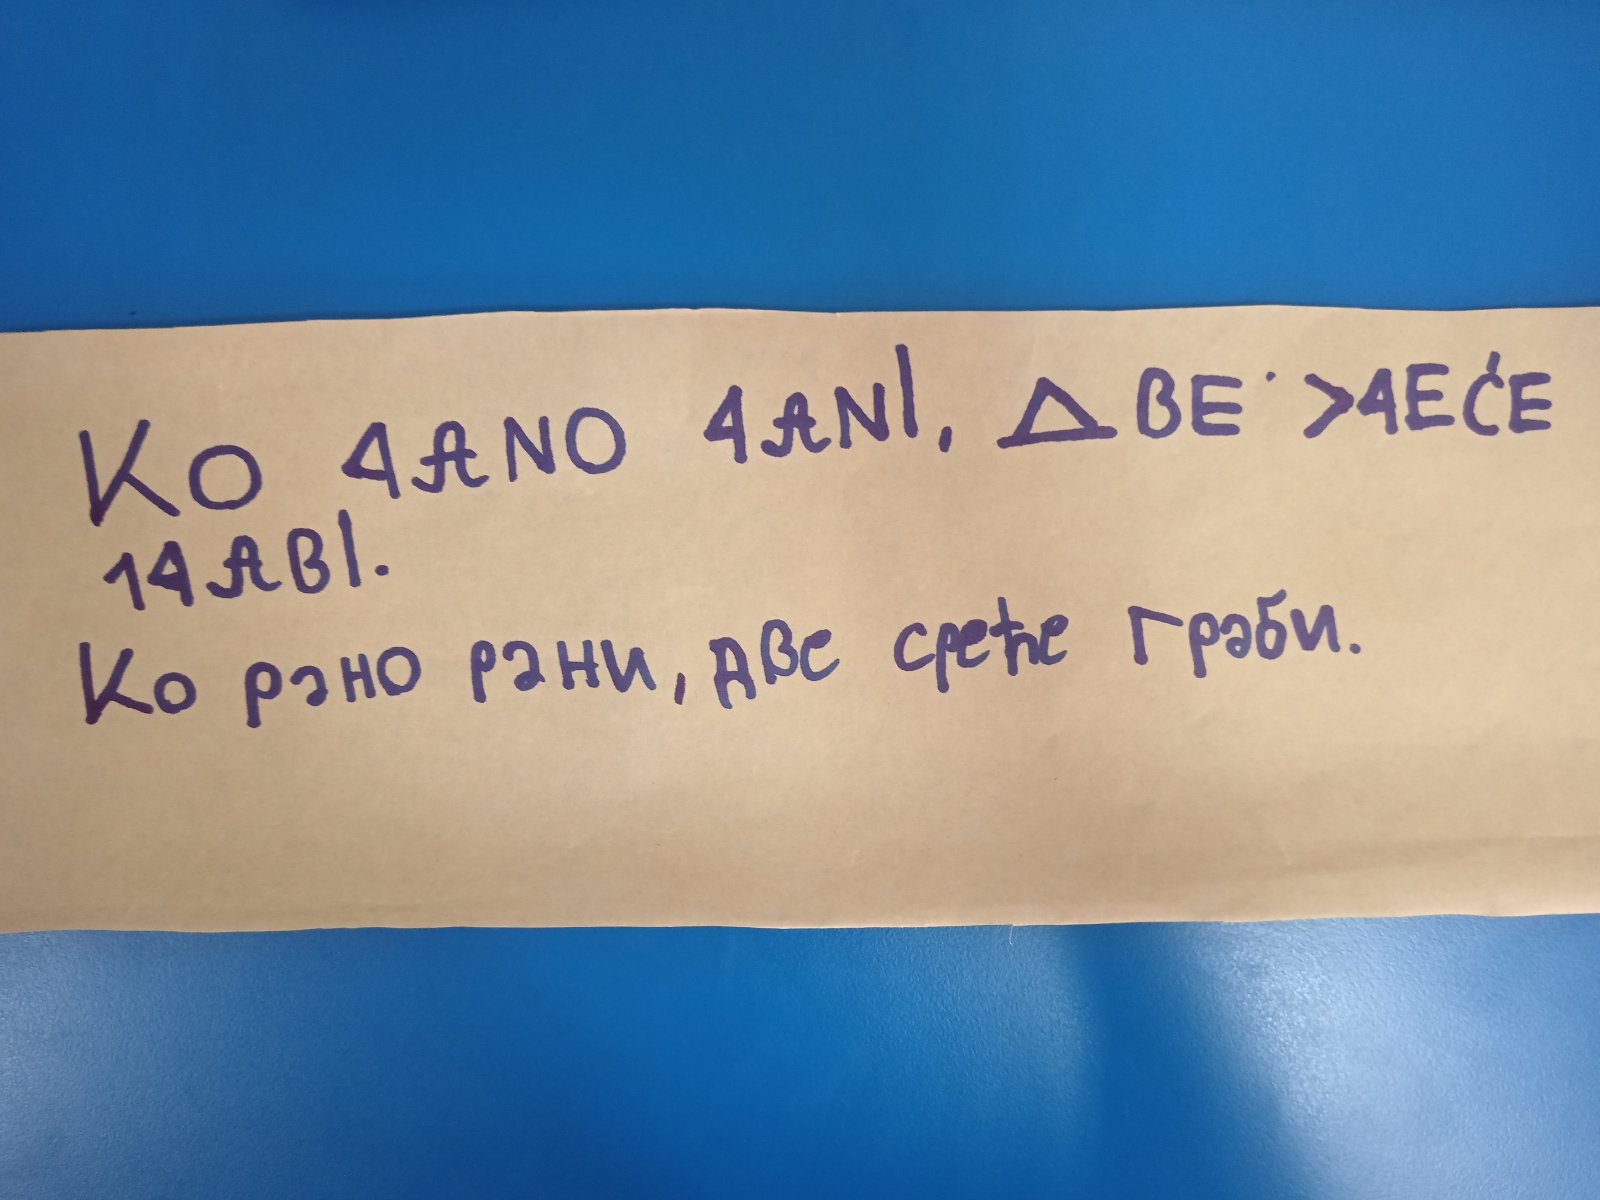 KO 4ANO 4ANI, ΔBE >4EĆE
14ABI.
Ко рано рани, две среће граби.